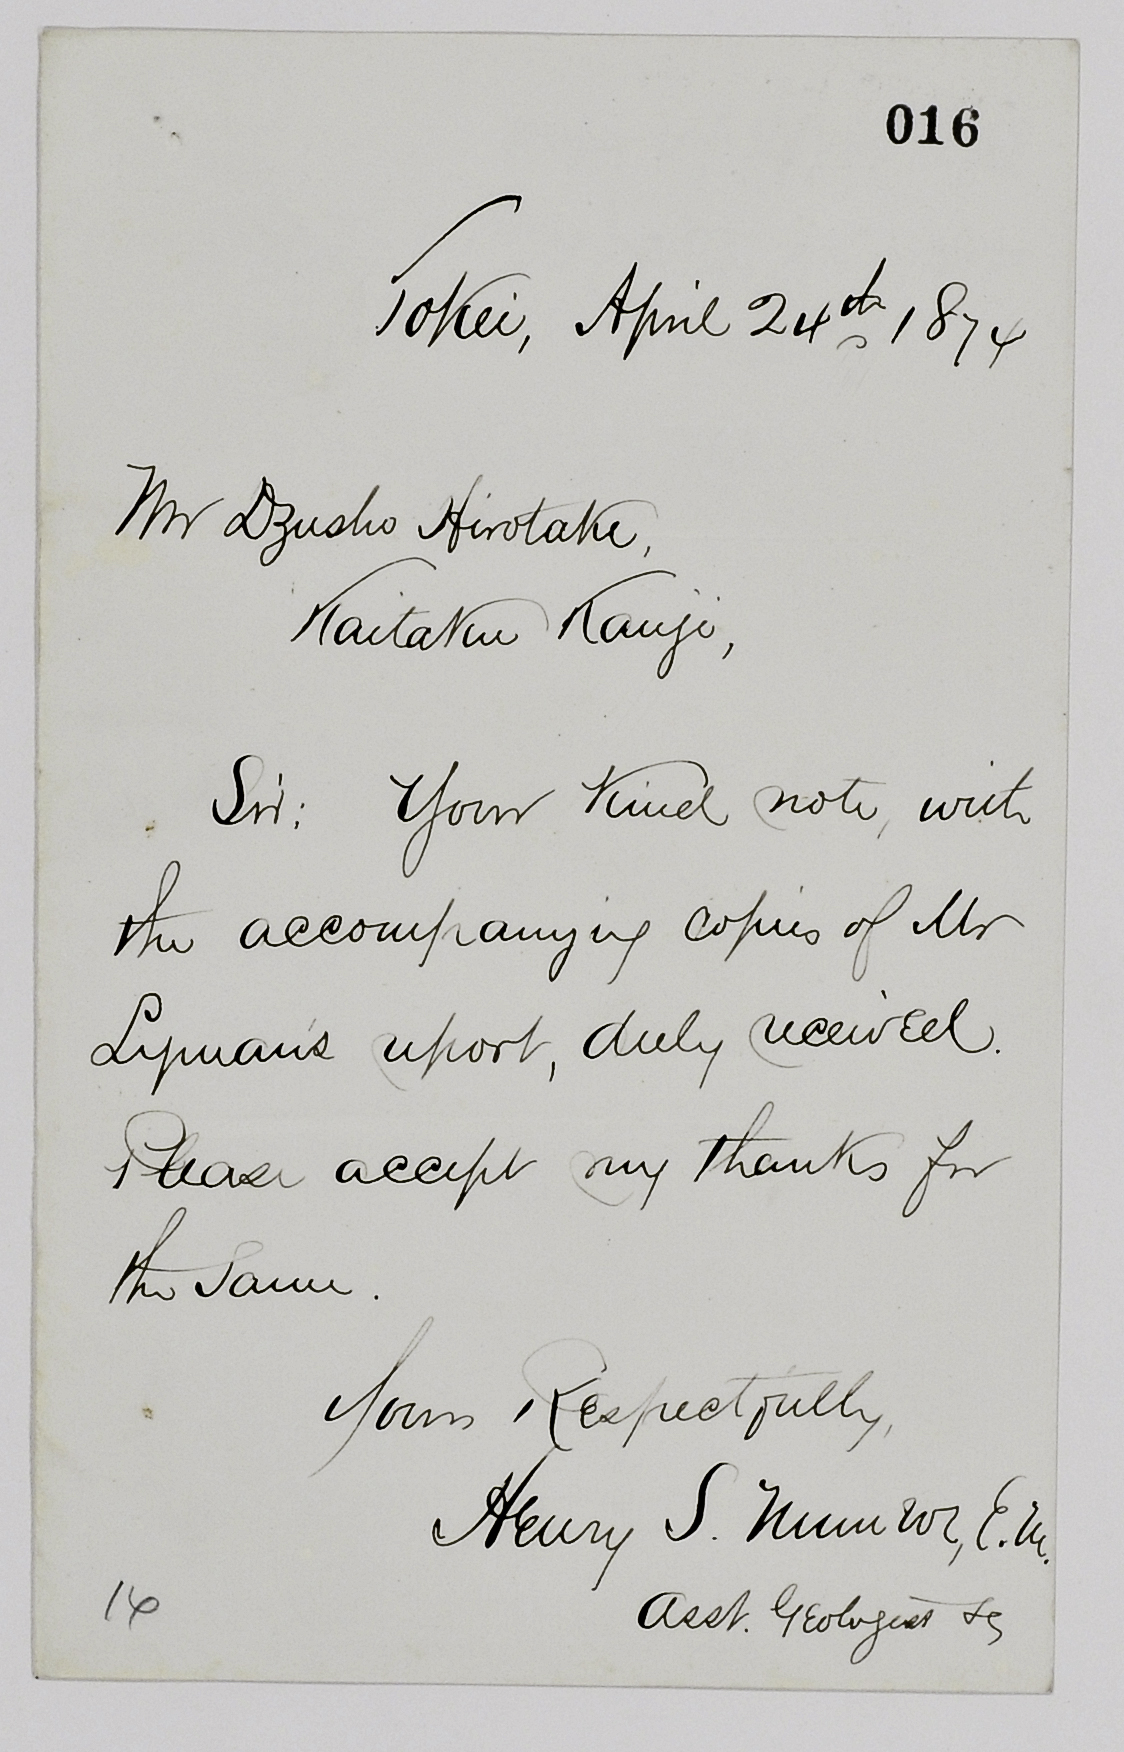 016
Tokei, April 24th 1874
Mr Dzusho Hirotake,
Kaitaku Kanji,
Sir: Your kind note, with
the accompanying copies of Mr
Lyman's report, duly received.
Please accept my thanks for
the same.
Yours Respectfully,
Henry S. Munroe, E.M.
Asst. Geologist &c
16